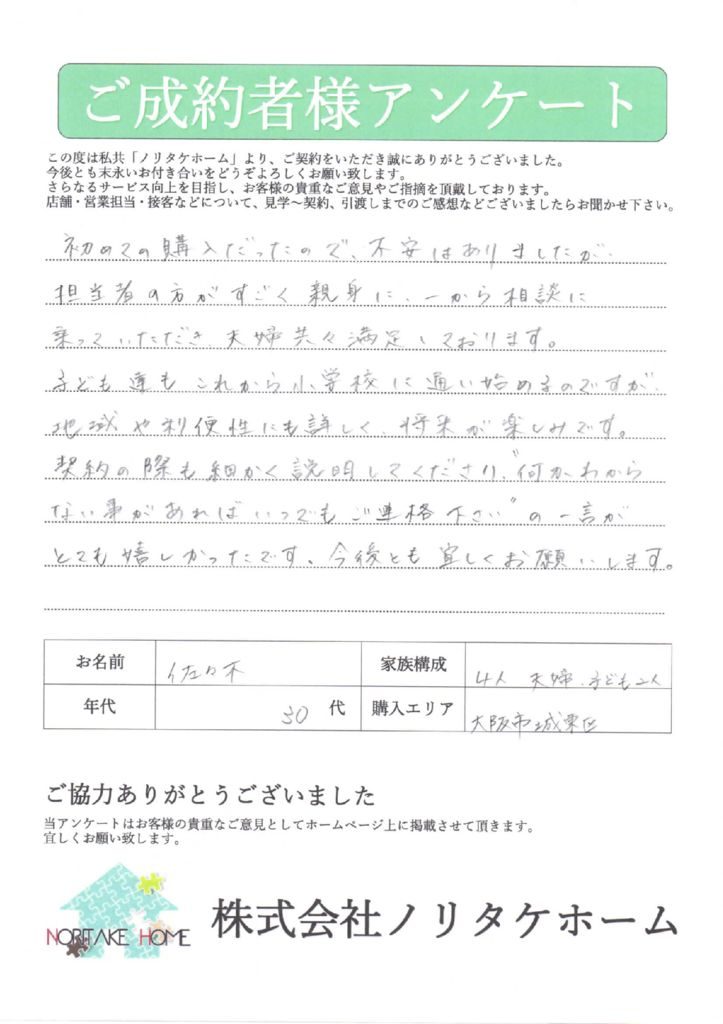 ご成約者様アンケート
この度は私共「ノリタケホーム」より、ご契約をいただき誠にありがとうございました。
今後とも末永いお付き合いをどうぞよろしくお願い致します。
さらなるサービス向上を目指し、お客様の貴重なご意見やご指摘を頂戴しております。
店舗・営業担当・接客などについて、見学～契約、引渡しまでのご感想などございましたらお聞かせ下さい。
初めての購入だったので、不安はありましたが、
担当者の方がすごく親身に、一から相談に
乗っていただき夫婦共々満足しております。
子ども達もこれから小学校に通い始めるのですが、
地域や利便性にも詳しく、将来が楽しみです。
契約の際も細かく説明してくださり、"何かわから
ない事があればいつでもご連絡下さい"の一言が
とても嬉しかったです。今後とも宜しくお願いします。
お名前 佐々木 家族構成 4人 夫婦、子ども二人
年代 30 代 購入エリア 大阪市城東区
ご協力ありがとうございました
当アンケートはお客様の貴重なご意見としてホームページ上に掲載させて頂きます。
宜しくお願い致します。
NORITAKE HOME 株式会社ノリタケホーム